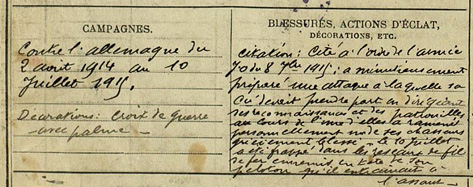 CAMPAGNES.
Contre l'allemagne du
2 août 1914 au 10
Juillet 1915.
Décorations: Croix de guerre
avec palme
BLESSURES, ACTIONS D'ÉCLAT,
DÉCORATIONS, ETC.
Citation: Cité à l'ordre de l'armée
du 8 7bre 1915: a minutieusement
préparé une attaque à laquelle sa
Cie devait prendre part en dirigeant
ses reconnaissances et des patrouilles
au cours de l'une d'elles a ramené
personnellement un de ses chasseurs
grièvement blessé - le 10 juillet
a été frappé dans les réseaux de fil
de fer ennemis en tête de son
peloton qu'il entraînait à
l'assaut